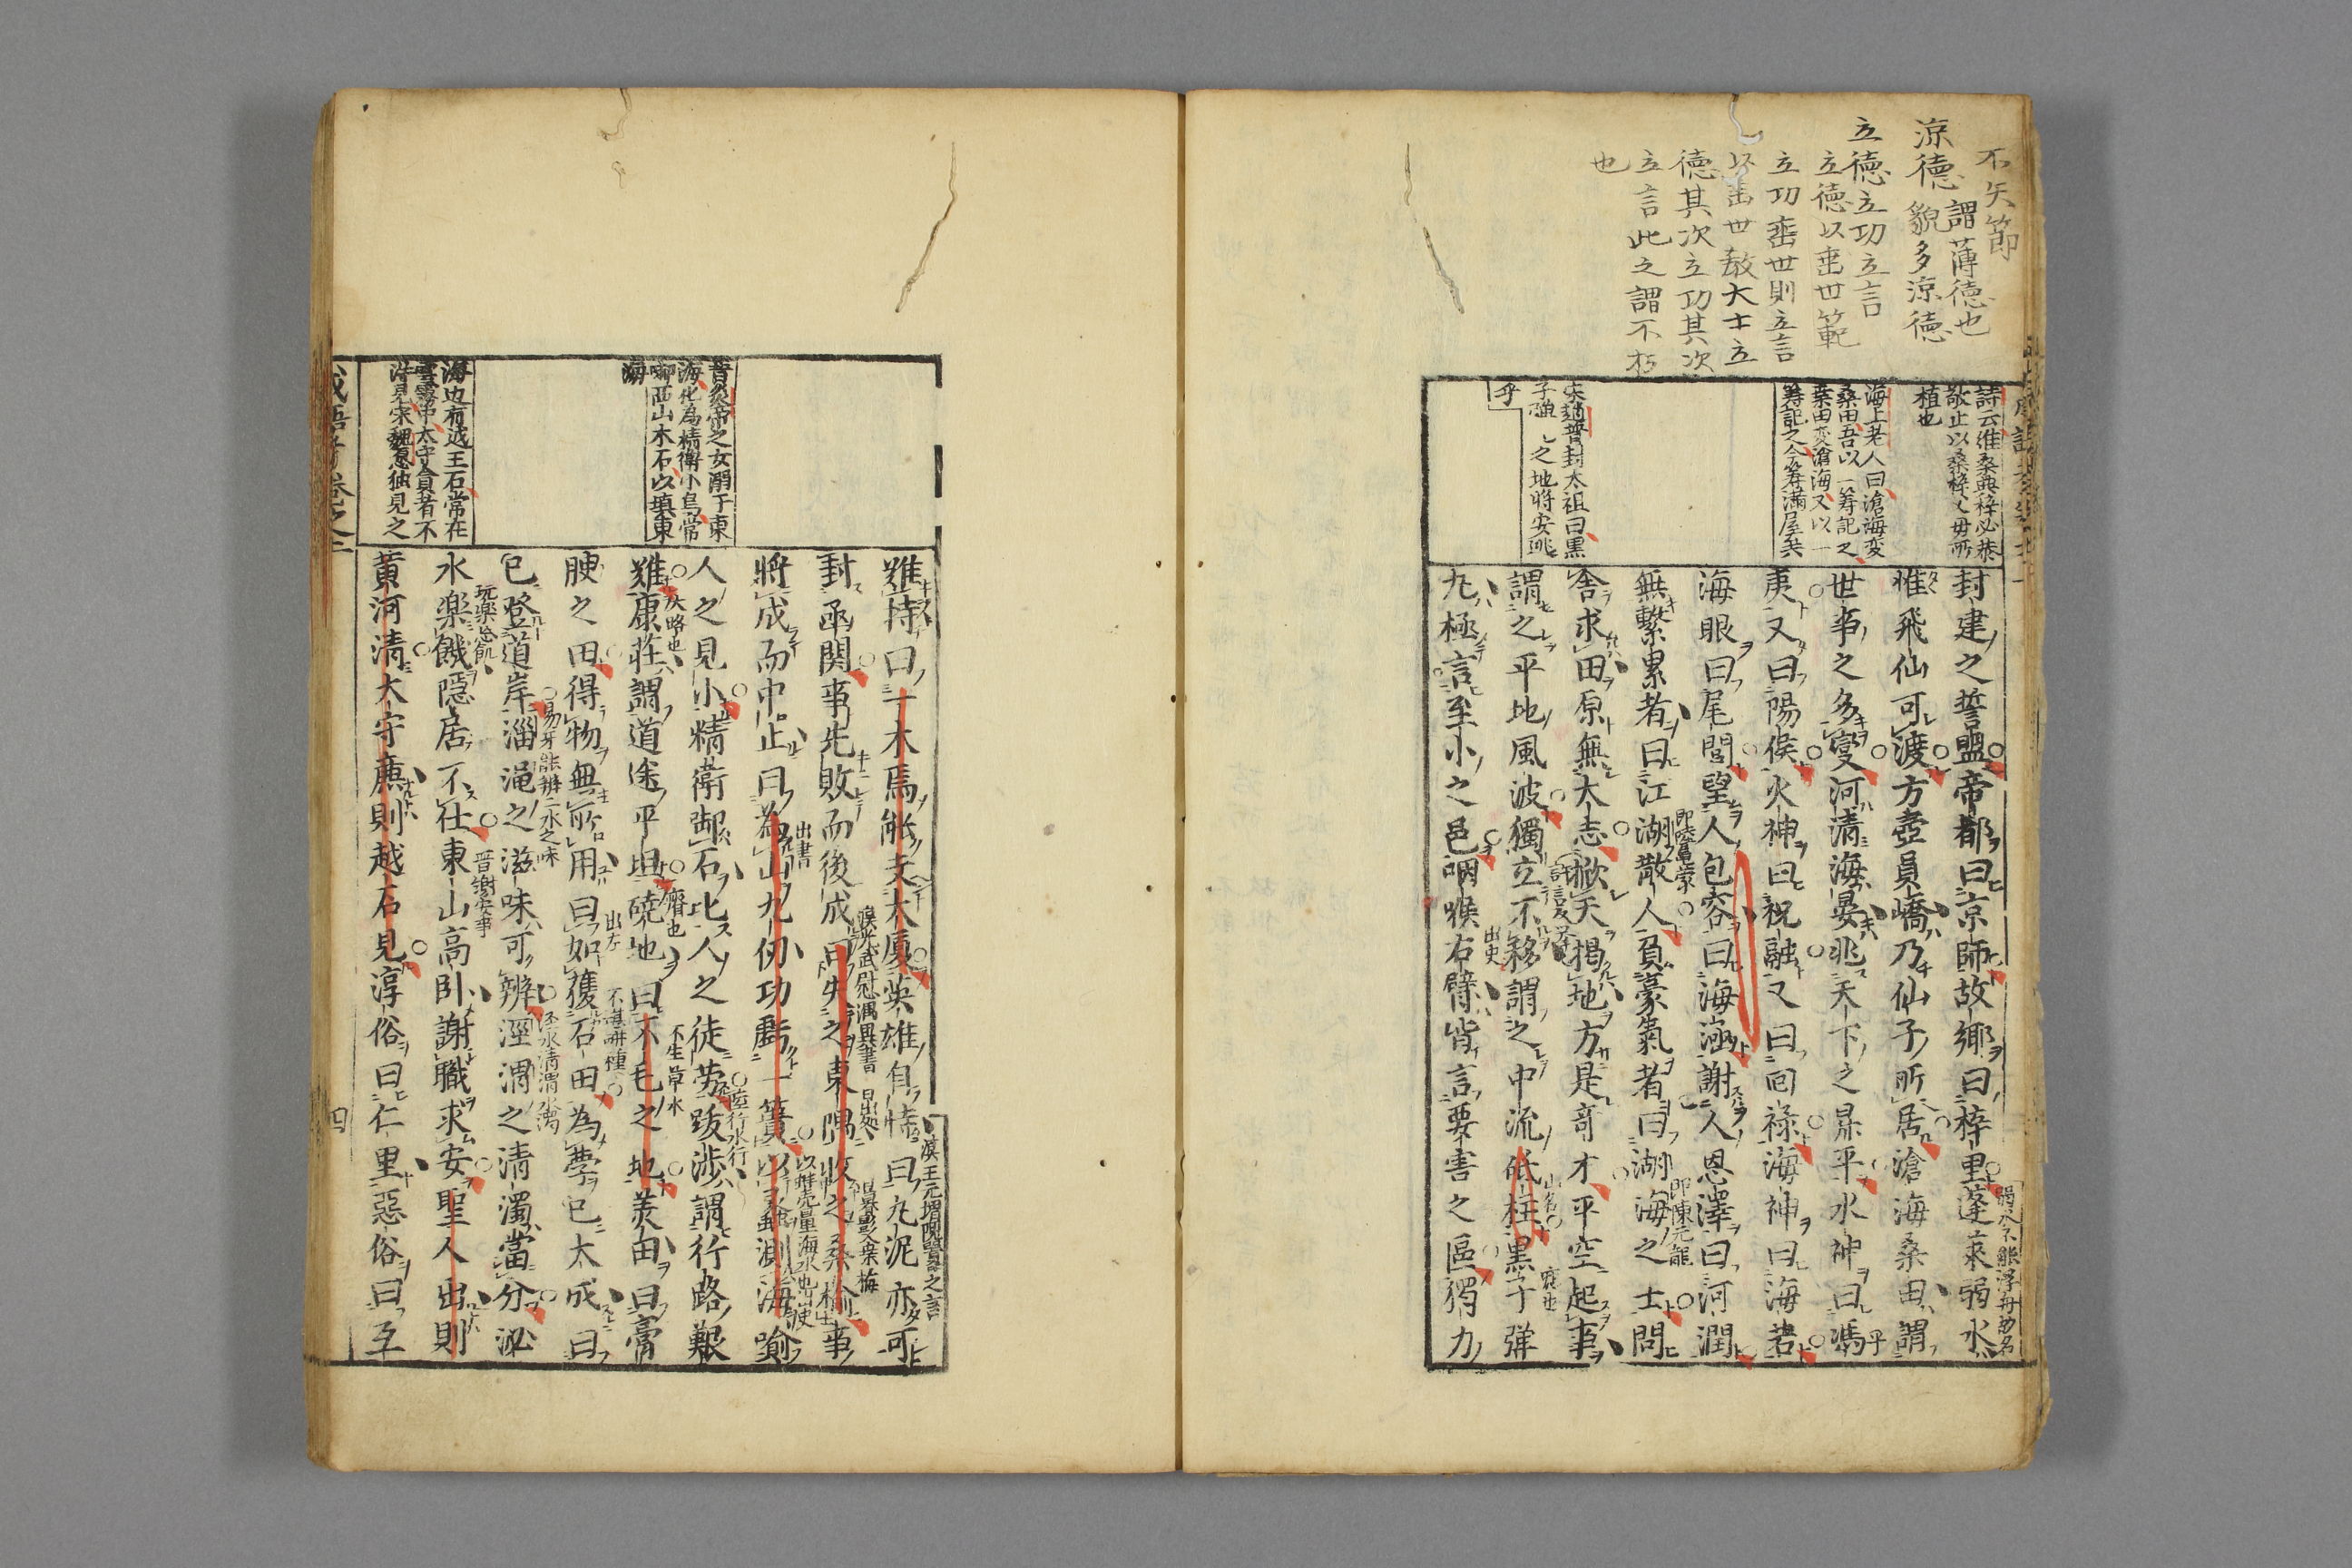 不矢節
謂薄德也
涼德 貌多涼德
立德立功立言
立德以垂世範
立功垂世則立言
以垂世教大士立
德其次立功其次
立言此之謂不朽
也
詩云維桑與梓必恭
敬止以桑梓父母所
植也
海上老人曰滄海変
桑田吾以一筭記之
桒田変滄海又以一
筭記之今筭滿屋矣
宋趙普封太祖曰黒
子彈〻之地將安逃
乎
封建之誓盟帝都曰京師故鄉曰梓里蓬萊弱水
弱水不能浮舟
惟飛仙可渡方壺員嶠乃仙子所居滄海桑田謂
世事之多変河清海晏兆天下之昇平水神曰馮
夷又曰陽侯火神曰祝融又曰回祿海神曰海若
海眼曰尾閭望人包容曰海涵謝人恩澤曰河潤
無繫累者曰江湖散人負豪氣者曰湖海之士問
即陸龜蒙
即陳元龍
舍求田原無大志掀天揭地方是奇才平空起事
謂之平地風波獨立不移謂之中流砥柱黒子弹
山名
九極言至小之邑咽喉右臂皆言要害之區獨力
出史
昔炎帝之女溺于東
海化為精衛小鳥常
啣西山木石以填東
海
海边有越王石常在
雲霧中太守貪者不
淂見宋魏愿独見之
難持曰一木焉能支大厦英雄自恃曰九泥亦可
漢王元謂隗囂之言
封函関事先敗而後成曰失之東隅收之桑榆事
將成而中止曰為山九仞功虧一簣以蠡測海喻
出書
人之見小精衛啣石比人之徒劳跋涉謂行路艱
陸行水行
難康莊謂道途平坦磽地曰不毛之地羙田曰膏
大路也
瘠也
不生草木
腴之田得物無所用曰如獲石田為學已太成曰
出左
不堪耕種
已登道岸淄渑之滋味可辨涇渭之清濁當分泌
易牙能辨二水之味
涇水清渭水濁
水楽饑隱居不仕東山高卧謝職求安聖人出則
玩楽忘飢
晋謝安事
黄河清太守廉則越石見淳俗曰仁里惡俗曰互
四